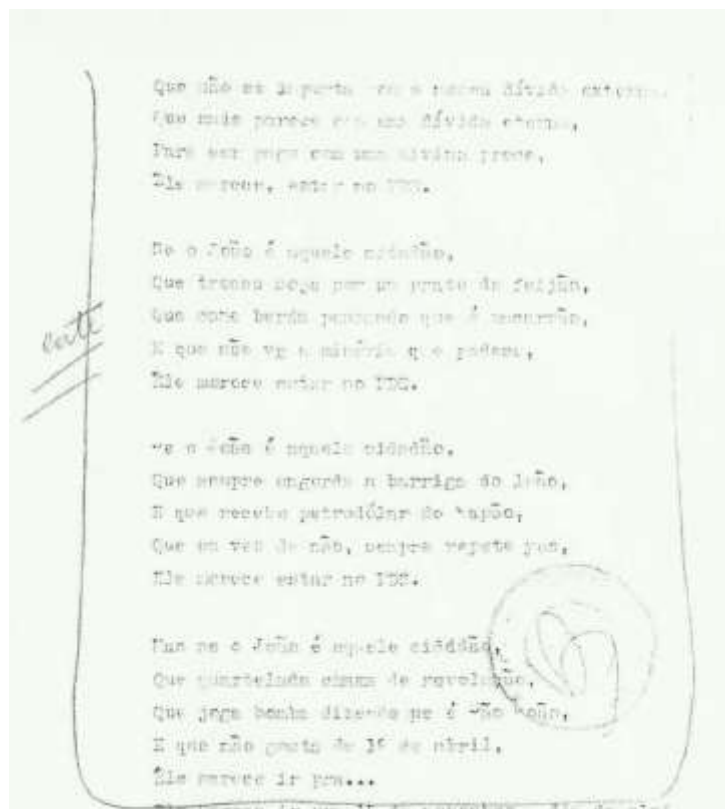 Que não se importa com a nossa dívida externa,
Que mais parece com uma dívida eterna,
Para ser paga com uma divina prece,
Ele merece, estar no PDS.
Se o João é aquele cidadão,
Que trocou por um prato de feijão,
Que come pensando que é macarrão,
E que não vê a miséria que padece,
Ele merece estar no PDS.
Se o João é aquele cidadão,
Que sempre engorda a barriga do leão,
E que recebe petrodólar do
Que em vez de não, sempre repete yes,
Ele merece estar no PDS.
Mas se o João é aquele cidadão,
Que quartelada chama de revolução,
Que joga bomba dizendo
E que não gosta de 1º de abril,
Ele merece ir pra...
corte